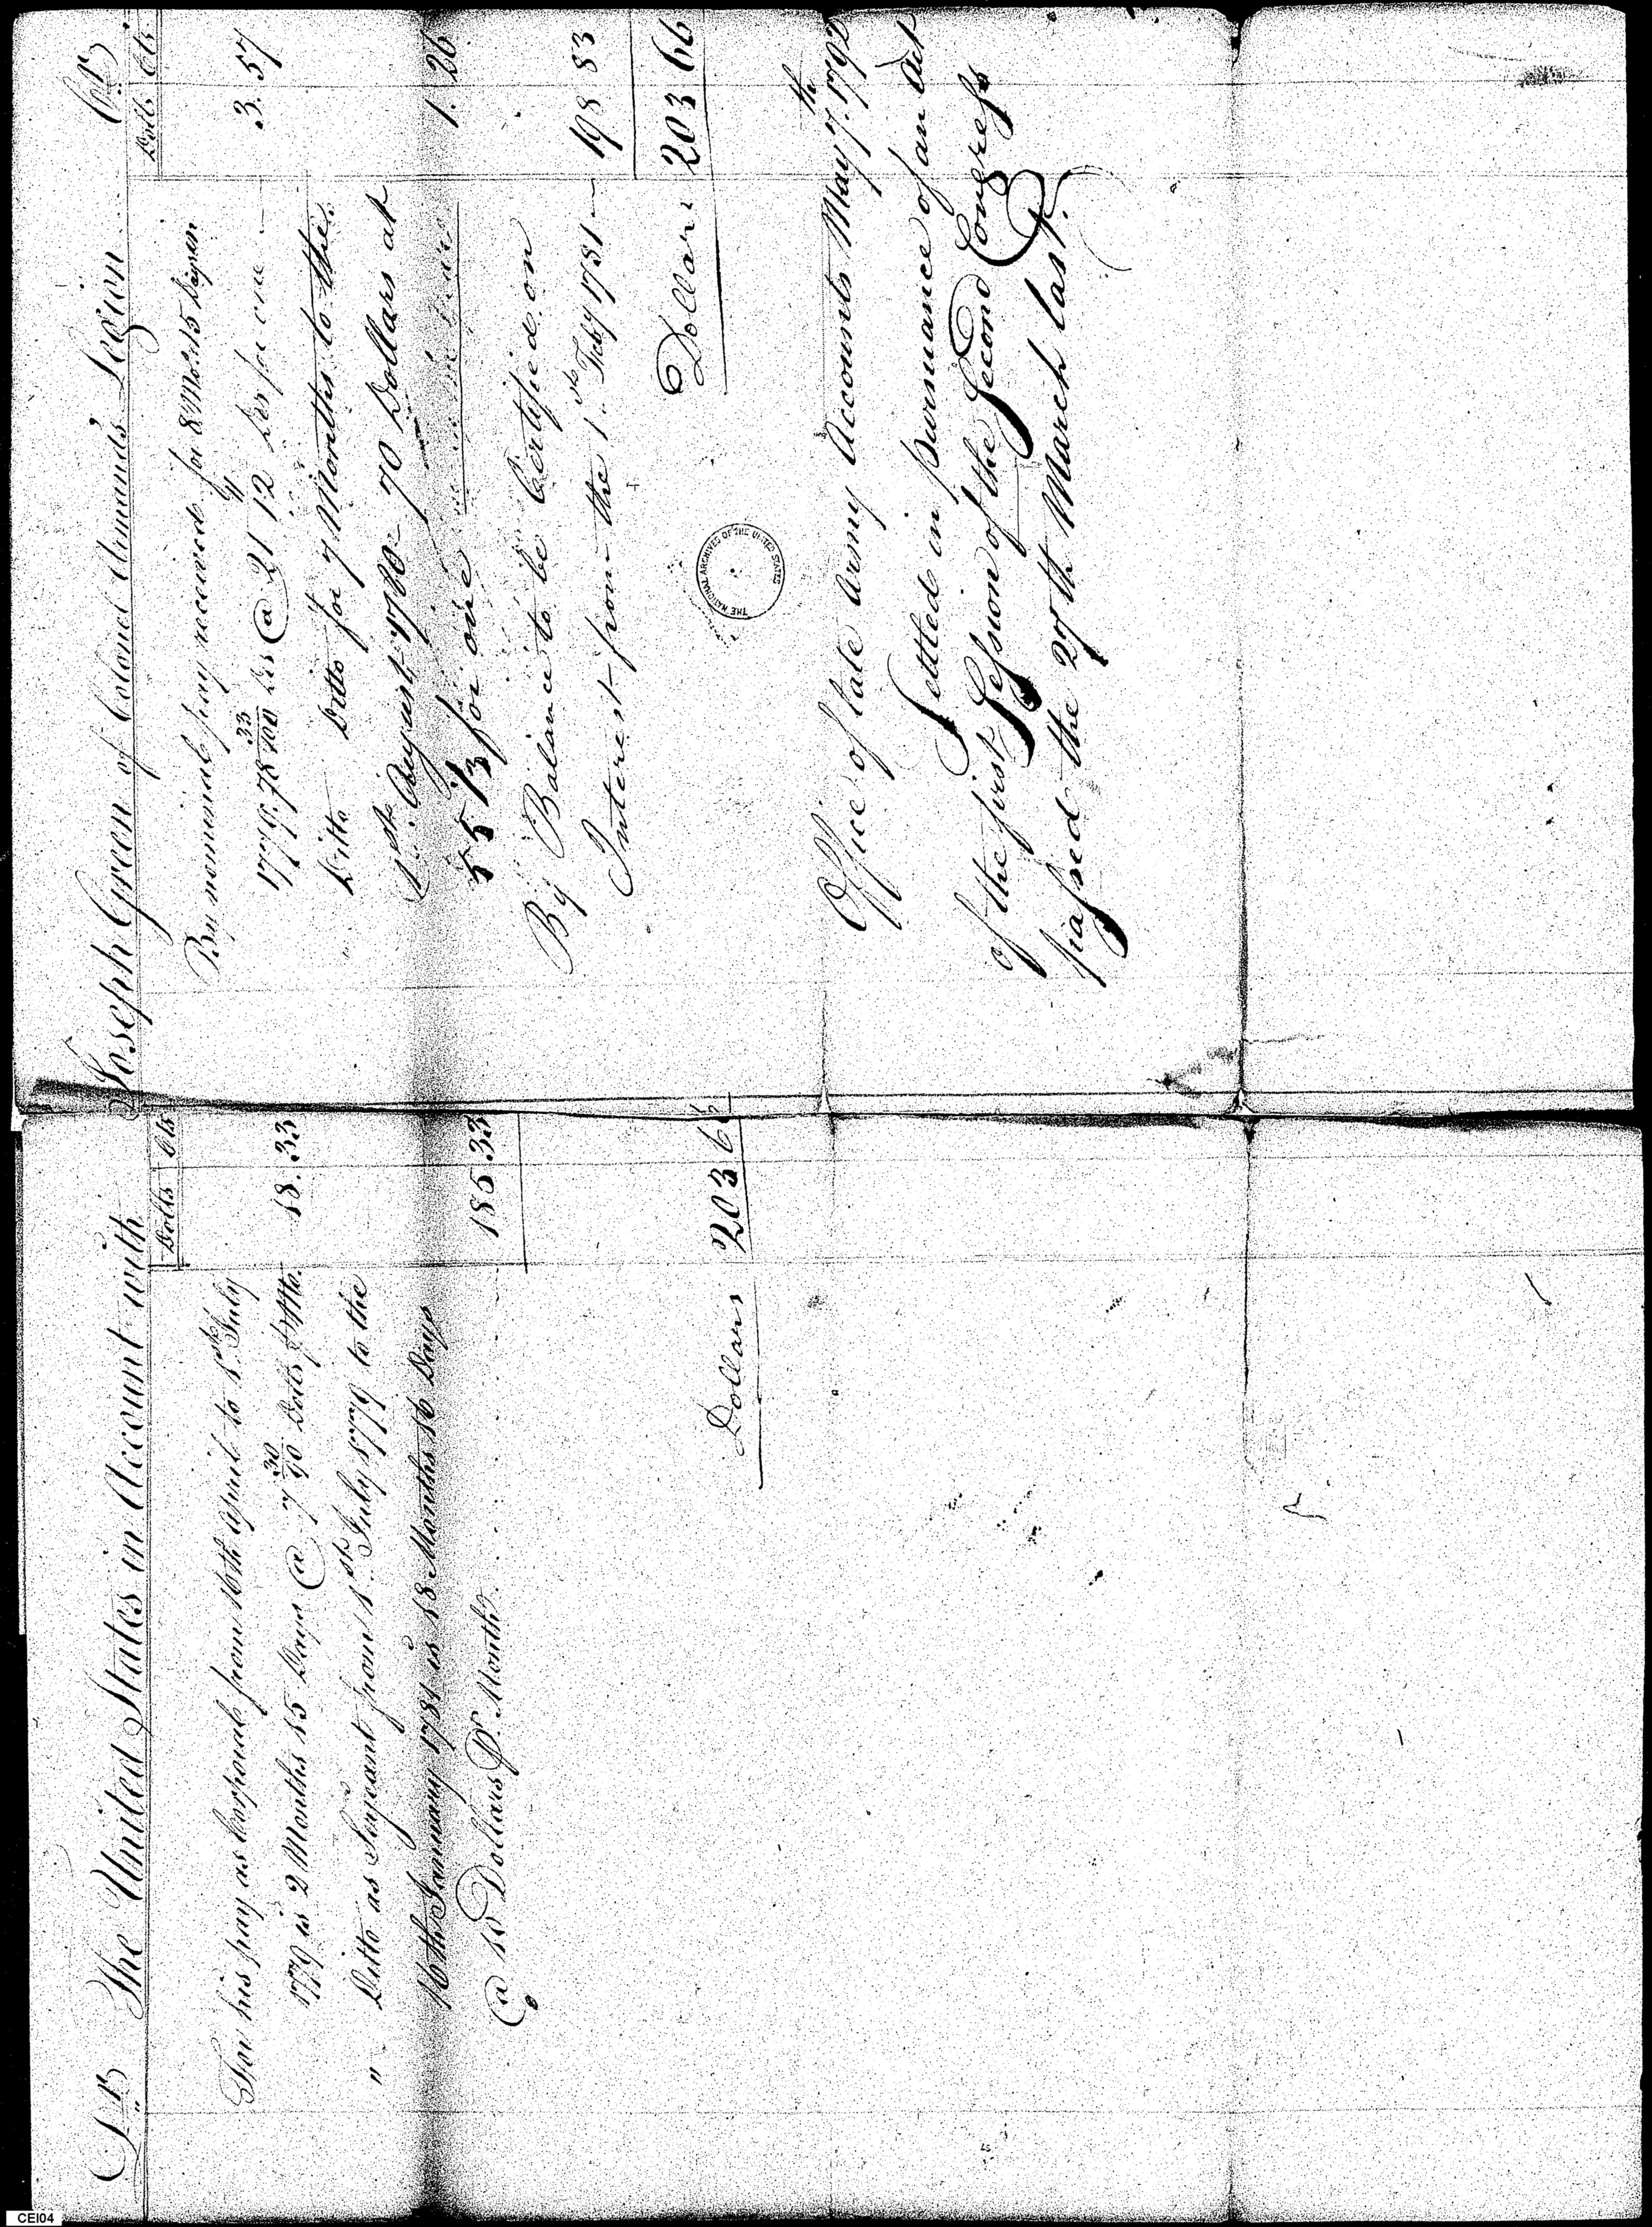 Dr The United States in Account with
Dolls Cts
For his pay as Corporal from 16th April to 1st July
1779 is 2 Months 15 Days @ 7 30/90 Dolls pr Mo. 18.33
" Ditto as Serjeant from 1st July 1779 to the
16th January 1781 is 18 Months 16 Days
@ 10 Dollars Pr. Month 185 33
Dollars 203 66
Joseph Green of Colonel Armands Legion Cr
Dolls Cts
By nominal pay received for 8 Mos 15 Days in
1779. 78 33/100 Drs @ 21 12 Drs for one 3.57
" Ditto Ditto for 7 Months to the
1st August 1780 - 70 Dollars at
55 1/3 for one 1.26
By Balance to be Certified on
Interest from the 1st Feby 1781 198 83
Dollars 203 66
THE NATIONAL ARCHIVES OF THE UNITED STATES
Office of late Army Accounts May 7th 1792
Settled in pursuance of an Act
of the first Session of the Second Congress
passed the 27th March last.
CEI04